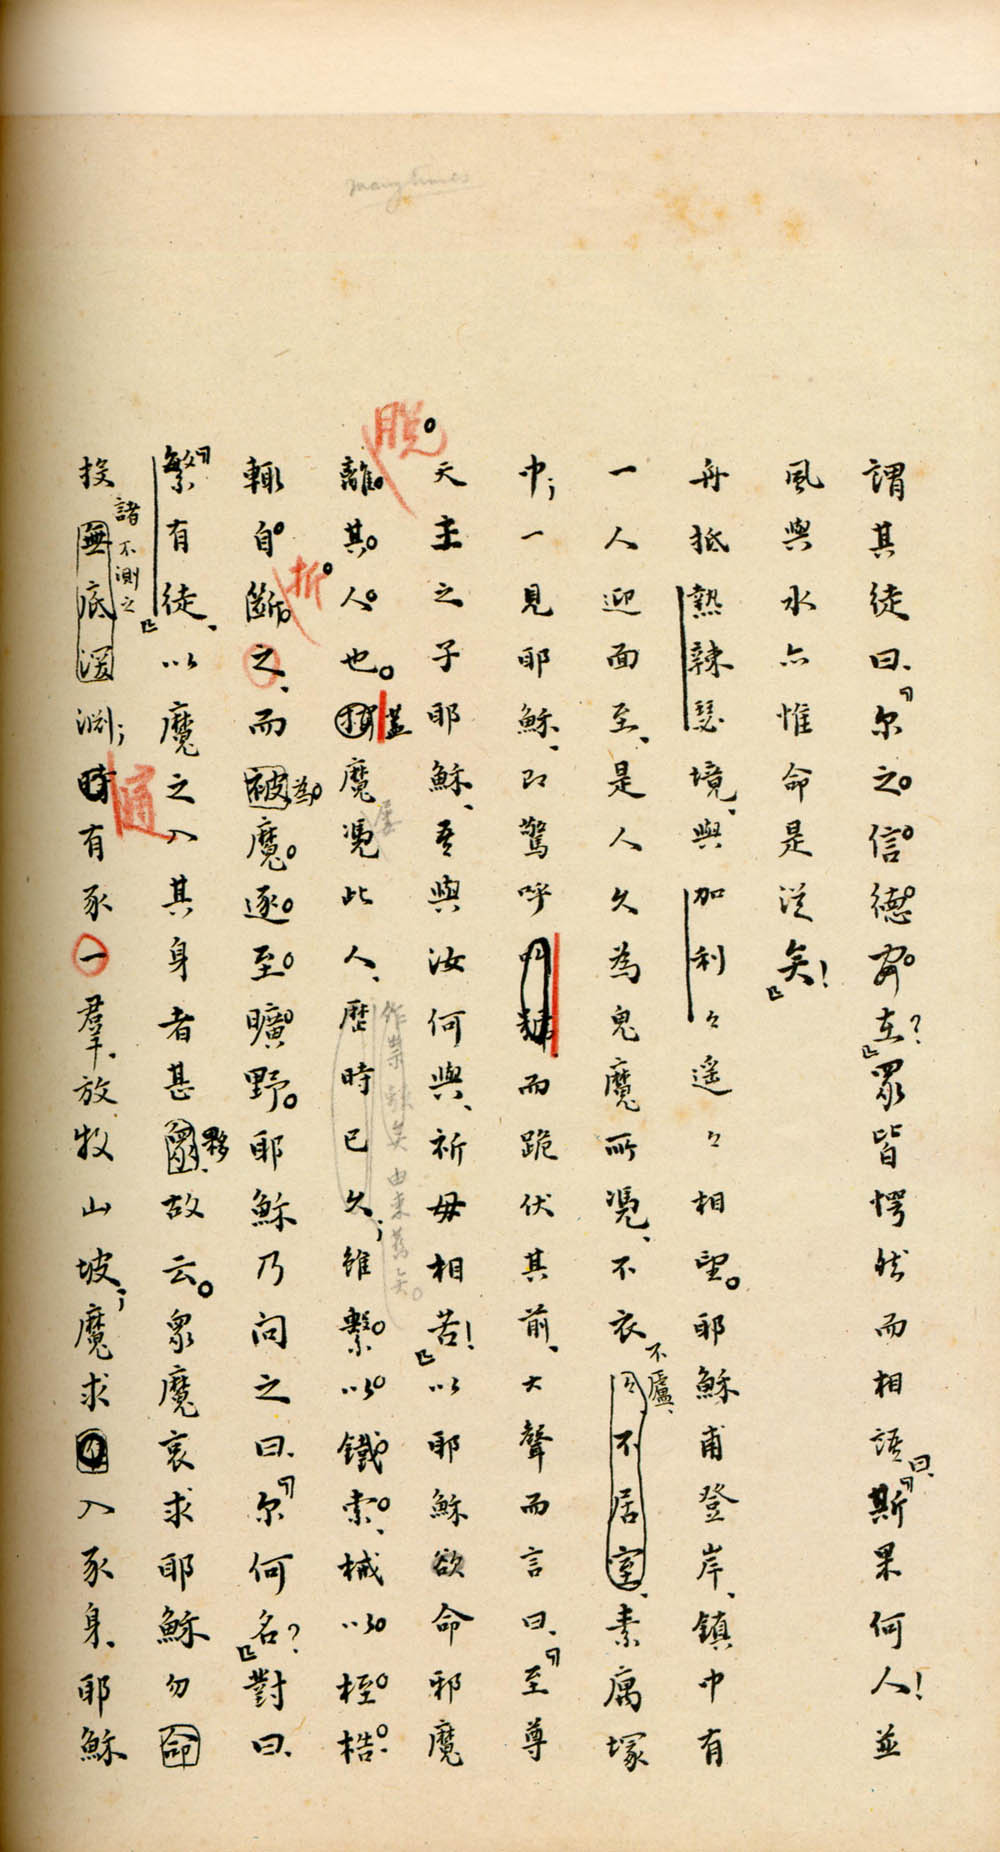 many times
謂其徒曰、「尔之信德安在?」眾皆愕然而相語曰、「斯果何人!並
風與水亦惟命是從矣!」
舟抵熱辣瑟境、與加利々遥々相望。耶穌甫登岸、鎮中有
一人迎面至、是人久為鬼魔所憑、不衣不廬、不居室、素寓塚
中;一見耶穌、即驚呼而跪伏其前、大聲而言曰、「至尊
天主之子耶穌、吾與汝何與、祈毋相苦!」以耶穌欲命邪魔
脫
離其人也。蓋魔憑此人、歷時已久;雖繫以鐵索、械以桎梏、
屢
作祟 矣由来舊矣。
輒自斷折之、而被為魔逐至曠野。耶穌乃問之曰、「尔何名?」對曰、
「繁有徒」、以魔之入其身者甚夥、故云。眾魔哀求耶穌勿命
投諸不測之無底深淵;時適有豕一群、放牧山坡;魔求入豕身、耶穌